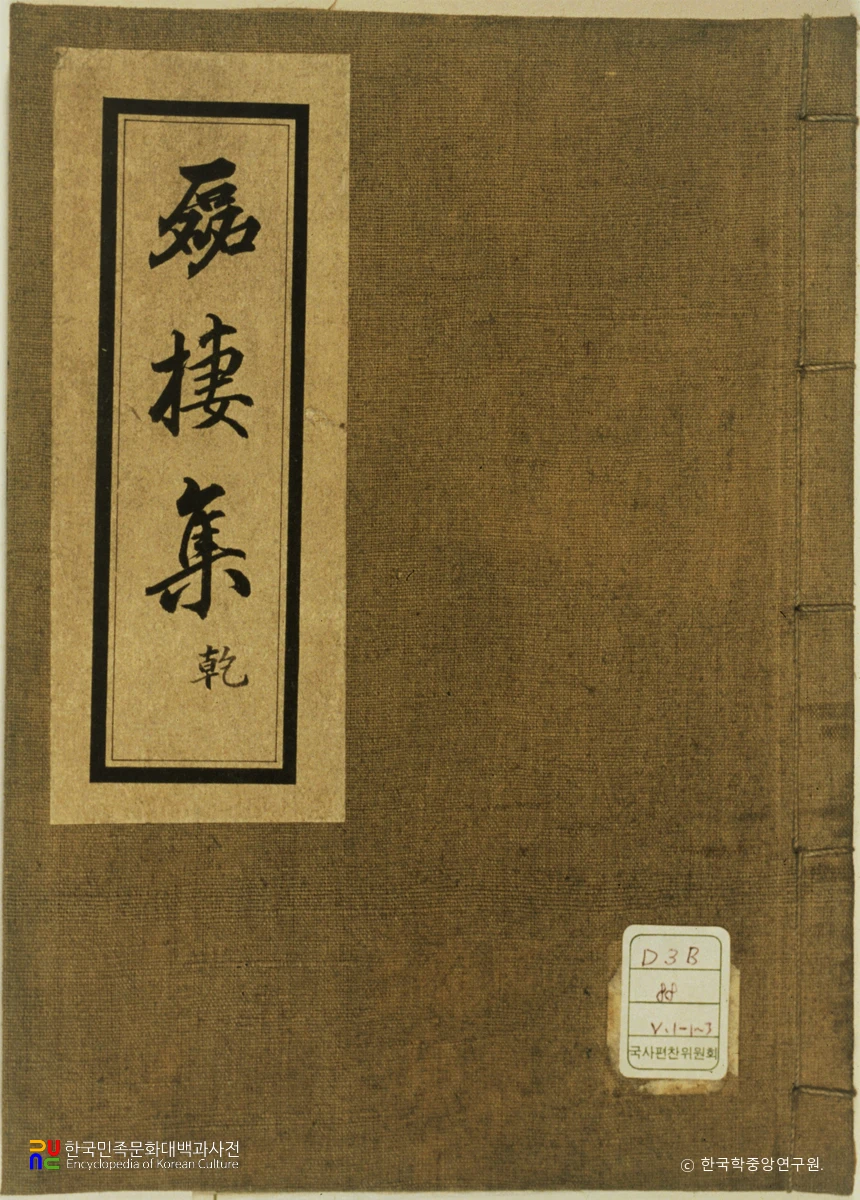 磊棲集
乾
D3B
88
V.1-1~3
국사편찬위원회
한국민족문화대백과사전
Encyclopedia of Korean Culture
ⓒ 한국학중앙연구원.